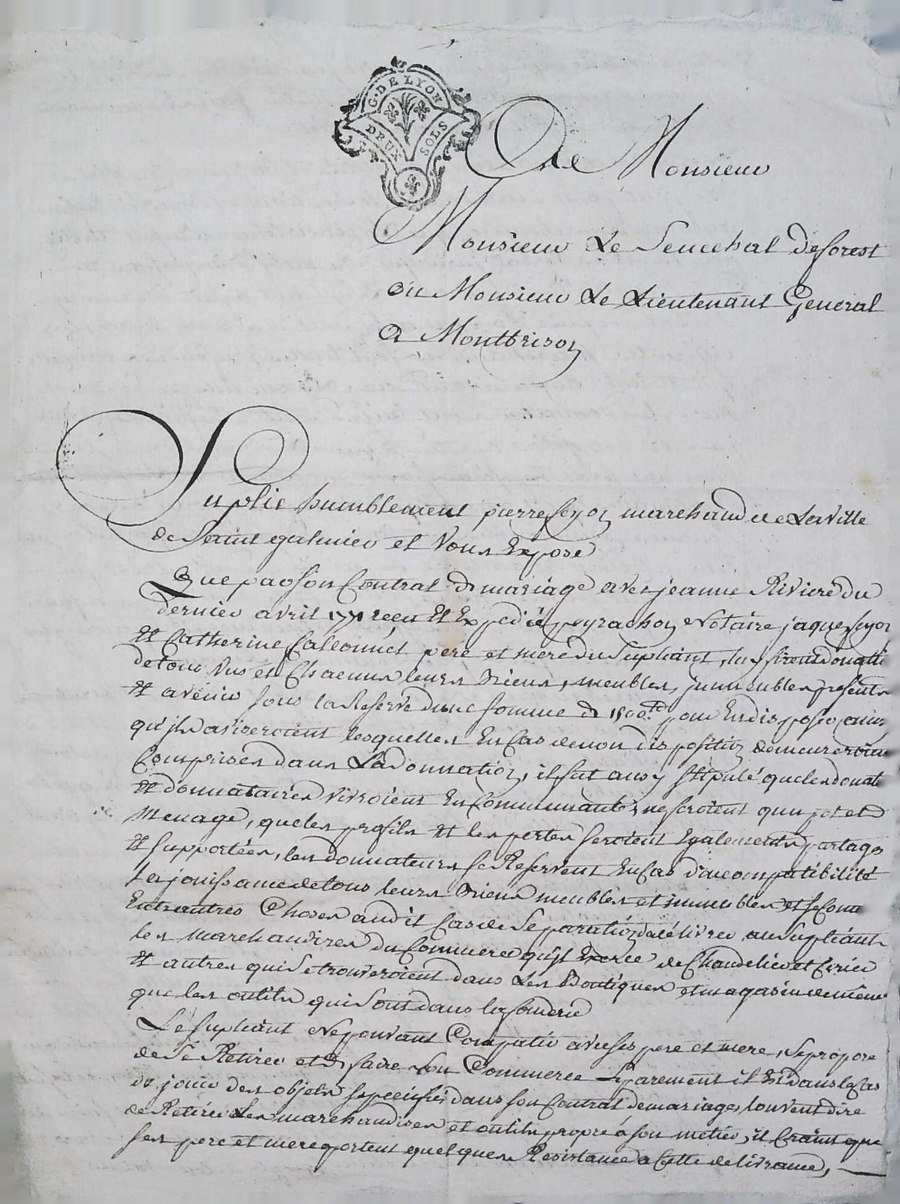 G. DE LYON
DEUX SOLS
de Monsieur
Monsieur Le Senechal deforest
ou Monsieur Le Lieutenant General
a Montbrison
Suplie humblement pierre marchand de Laville
de Saint galmier et Vous Expose
Que par son Contrat de mariage avec jeanne Riviere du
dernier avril 1771 recu et Expedié peyrachon Notaire jaques
et Catherine pere et mere du Supliant, luy firent
de tous Uns et Chacuns leurs Biens, meubles, jmmeubles presents
et avenir sous la Reserve dune somme de 1500 pour En disposer
qu'jls aviseroient lesquelles En Cas de non disposition
Comprises dans La donnation, il fut aussy stipulé que les
et donnataires vivroient En Communauté, ne feroient qun pot et
menage, que les profits et les pertes seroient Egalements
et supportées, les donnateurs se Reservent En Cas d'incompatibilité
les jouissance de tous leurs Biens meubles et immeubles et
Entrautres Choses audit Cas de Separation de delivrer au Supliant
les marchandises du Commerce qu'jl Exerce de Chandelier et Cirier
et autres qui se trouveroient dans Les Boutiques et magasin de même
que les outils qui sont dans la fonderie
Le supliant Ne pouvant Compatir avec ses pere et mere, se propose
de Se Retirer et de faire son Commerce separement il Est dans le Cas
de jouir des objets specifiés dans son Contrat de mariage,
de Retirer Les marchandises et outils propre a son metier, il Craint que
ses pere et mere portent quelque Resistance a Cette delivrance,